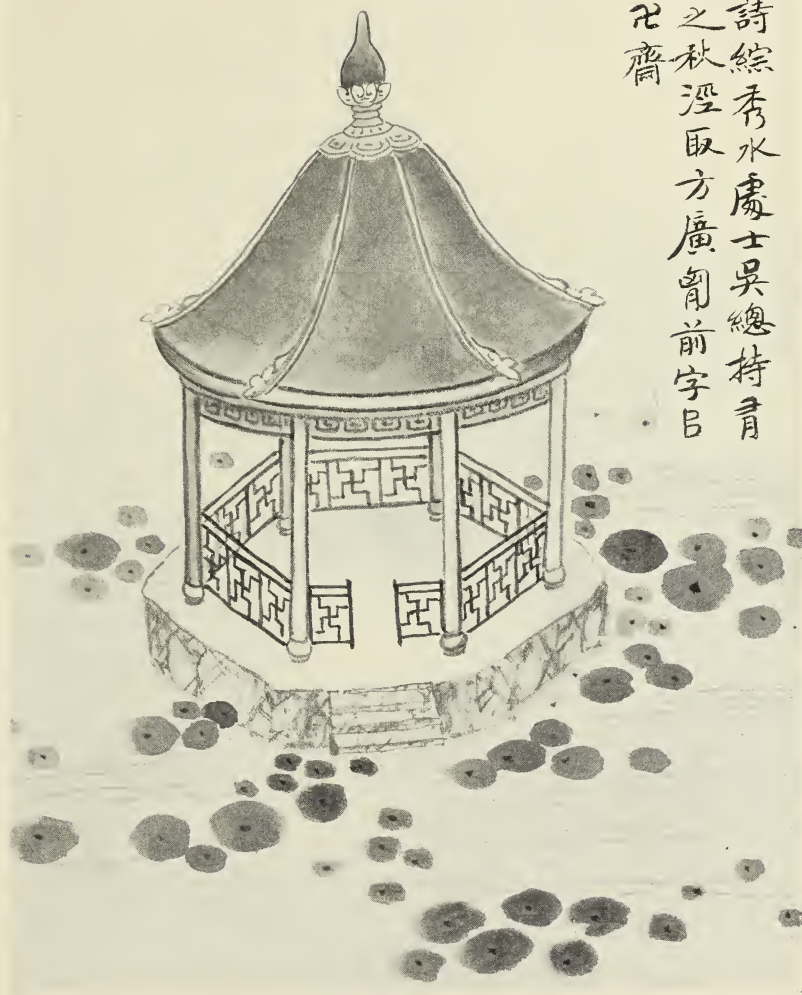 詩綜秀水處士吳總持
之秋涇取方廣胷前字
卍齋